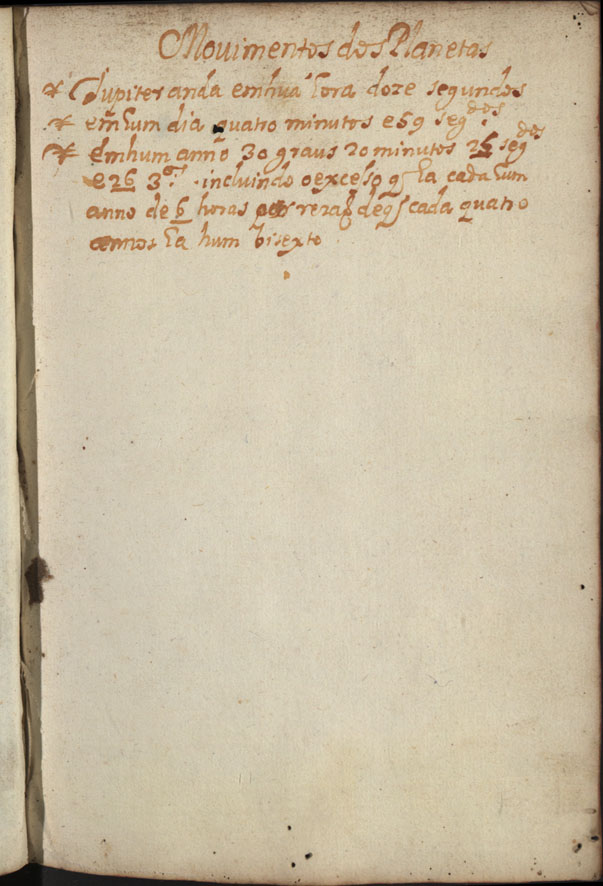 Mouimentos dos Planetas
Jupiter anda em hũa hora doze segundos
em hum dia quatro minutos e 59 seg.dos
Em hum anno 30 graus 20 minutos 25 seg.dos
e 26 3.os incluindo o exceso q̃ ha cada hum
anno de 6 horas de q̃ cada quatro
annos ha hum bisexto